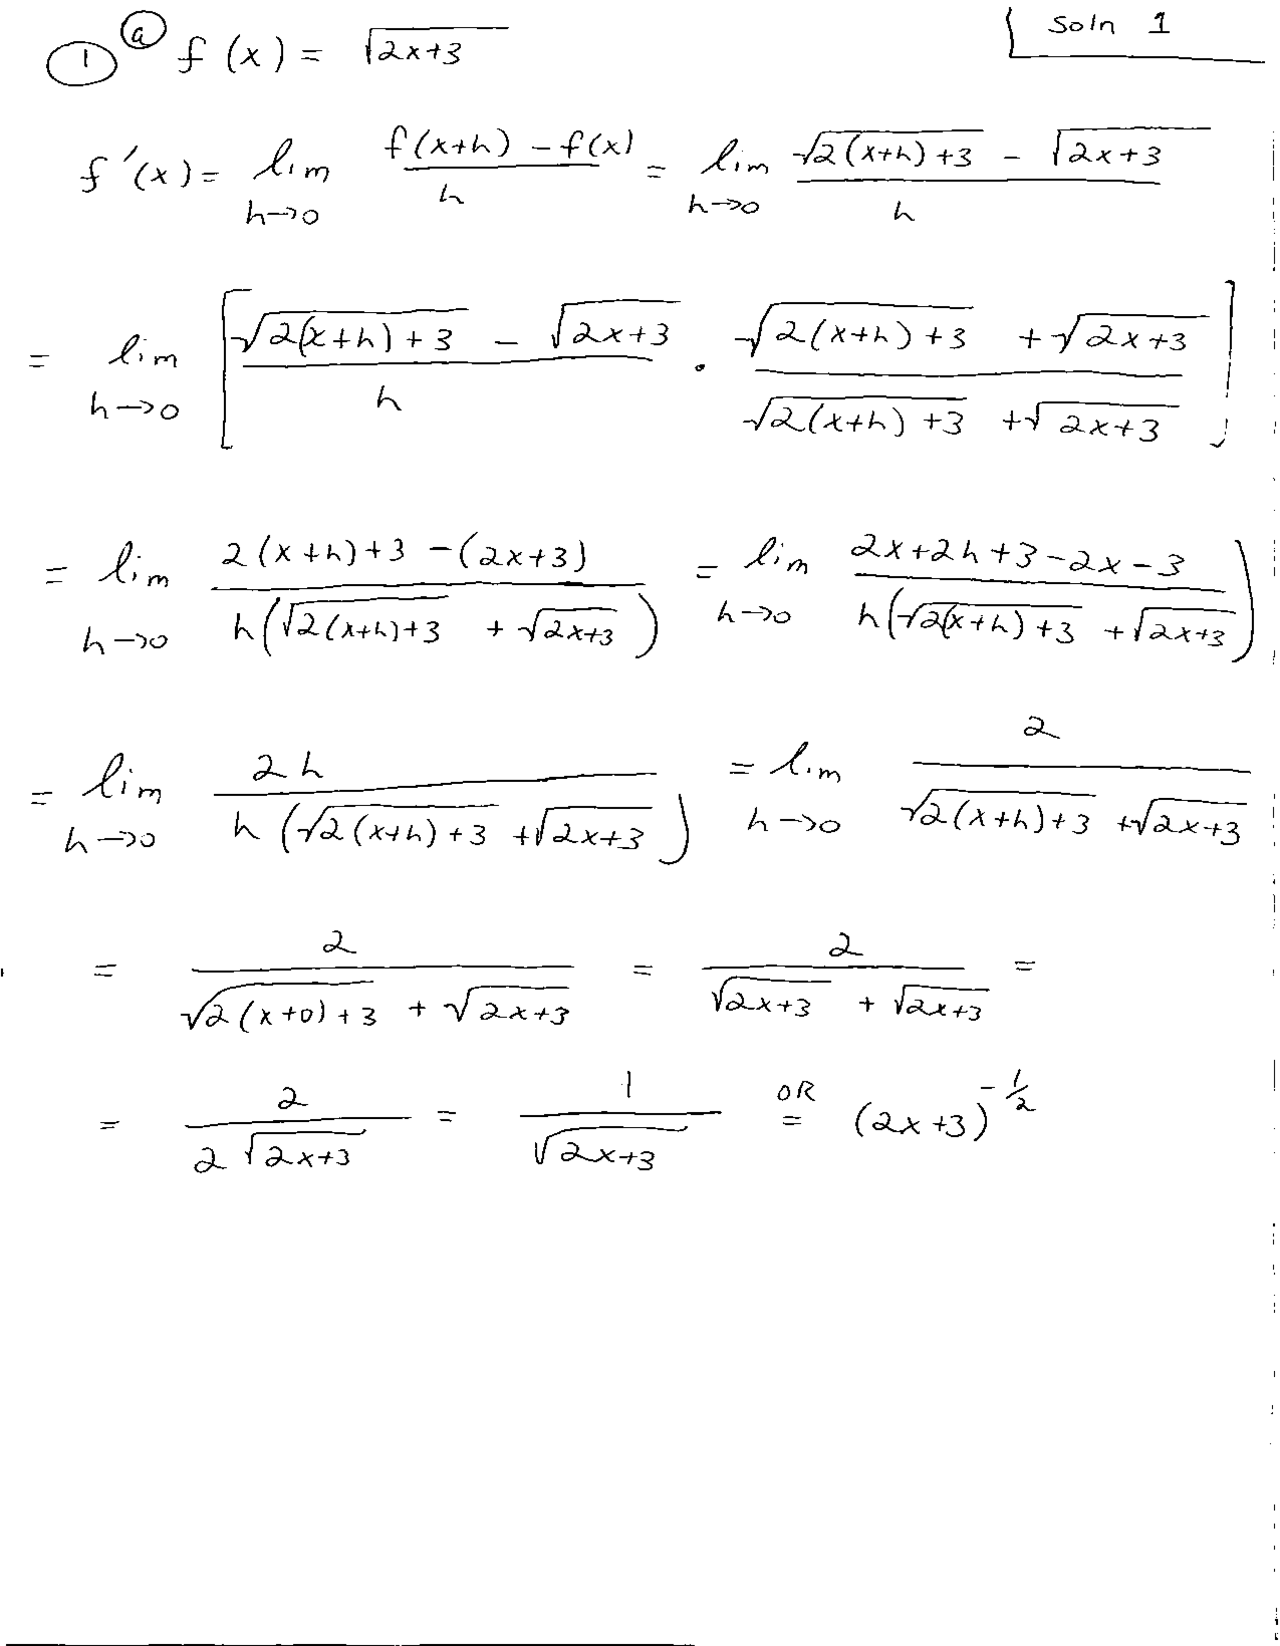 Soln 1
① ⓐ f(x) = √(2x+3)
f'(x) = lim h→0 (f(x+h) - f(x))/h = lim h→0 (√(2(x+h)+3) - √(2x+3))/h
= lim h→0 [ (√(2(x+h)+3) - √(2x+3))/h · (√(2(x+h)+3) + √(2x+3))/(√(2(x+h)+3) + √(2x+3)) ]
= lim h→0 (2(x+h)+3 - (2x+3))/(h(√(2(x+h)+3) + √(2x+3))) = lim h→0 (2x+2h+3-2x-3)/(h(√(2(x+h)+3) + √(2x+3)))
= lim h→0 2h/(h(√(2(x+h)+3) + √(2x+3))) = lim h→0 2/(√(2(x+h)+3) + √(2x+3))
= 2/(√(2(x+0)+3) + √(2x+3)) = 2/(√(2x+3) + √(2x+3)) =
= 2/(2√(2x+3)) = 1/√(2x+3) OR = (2x+3)^(-1/2)